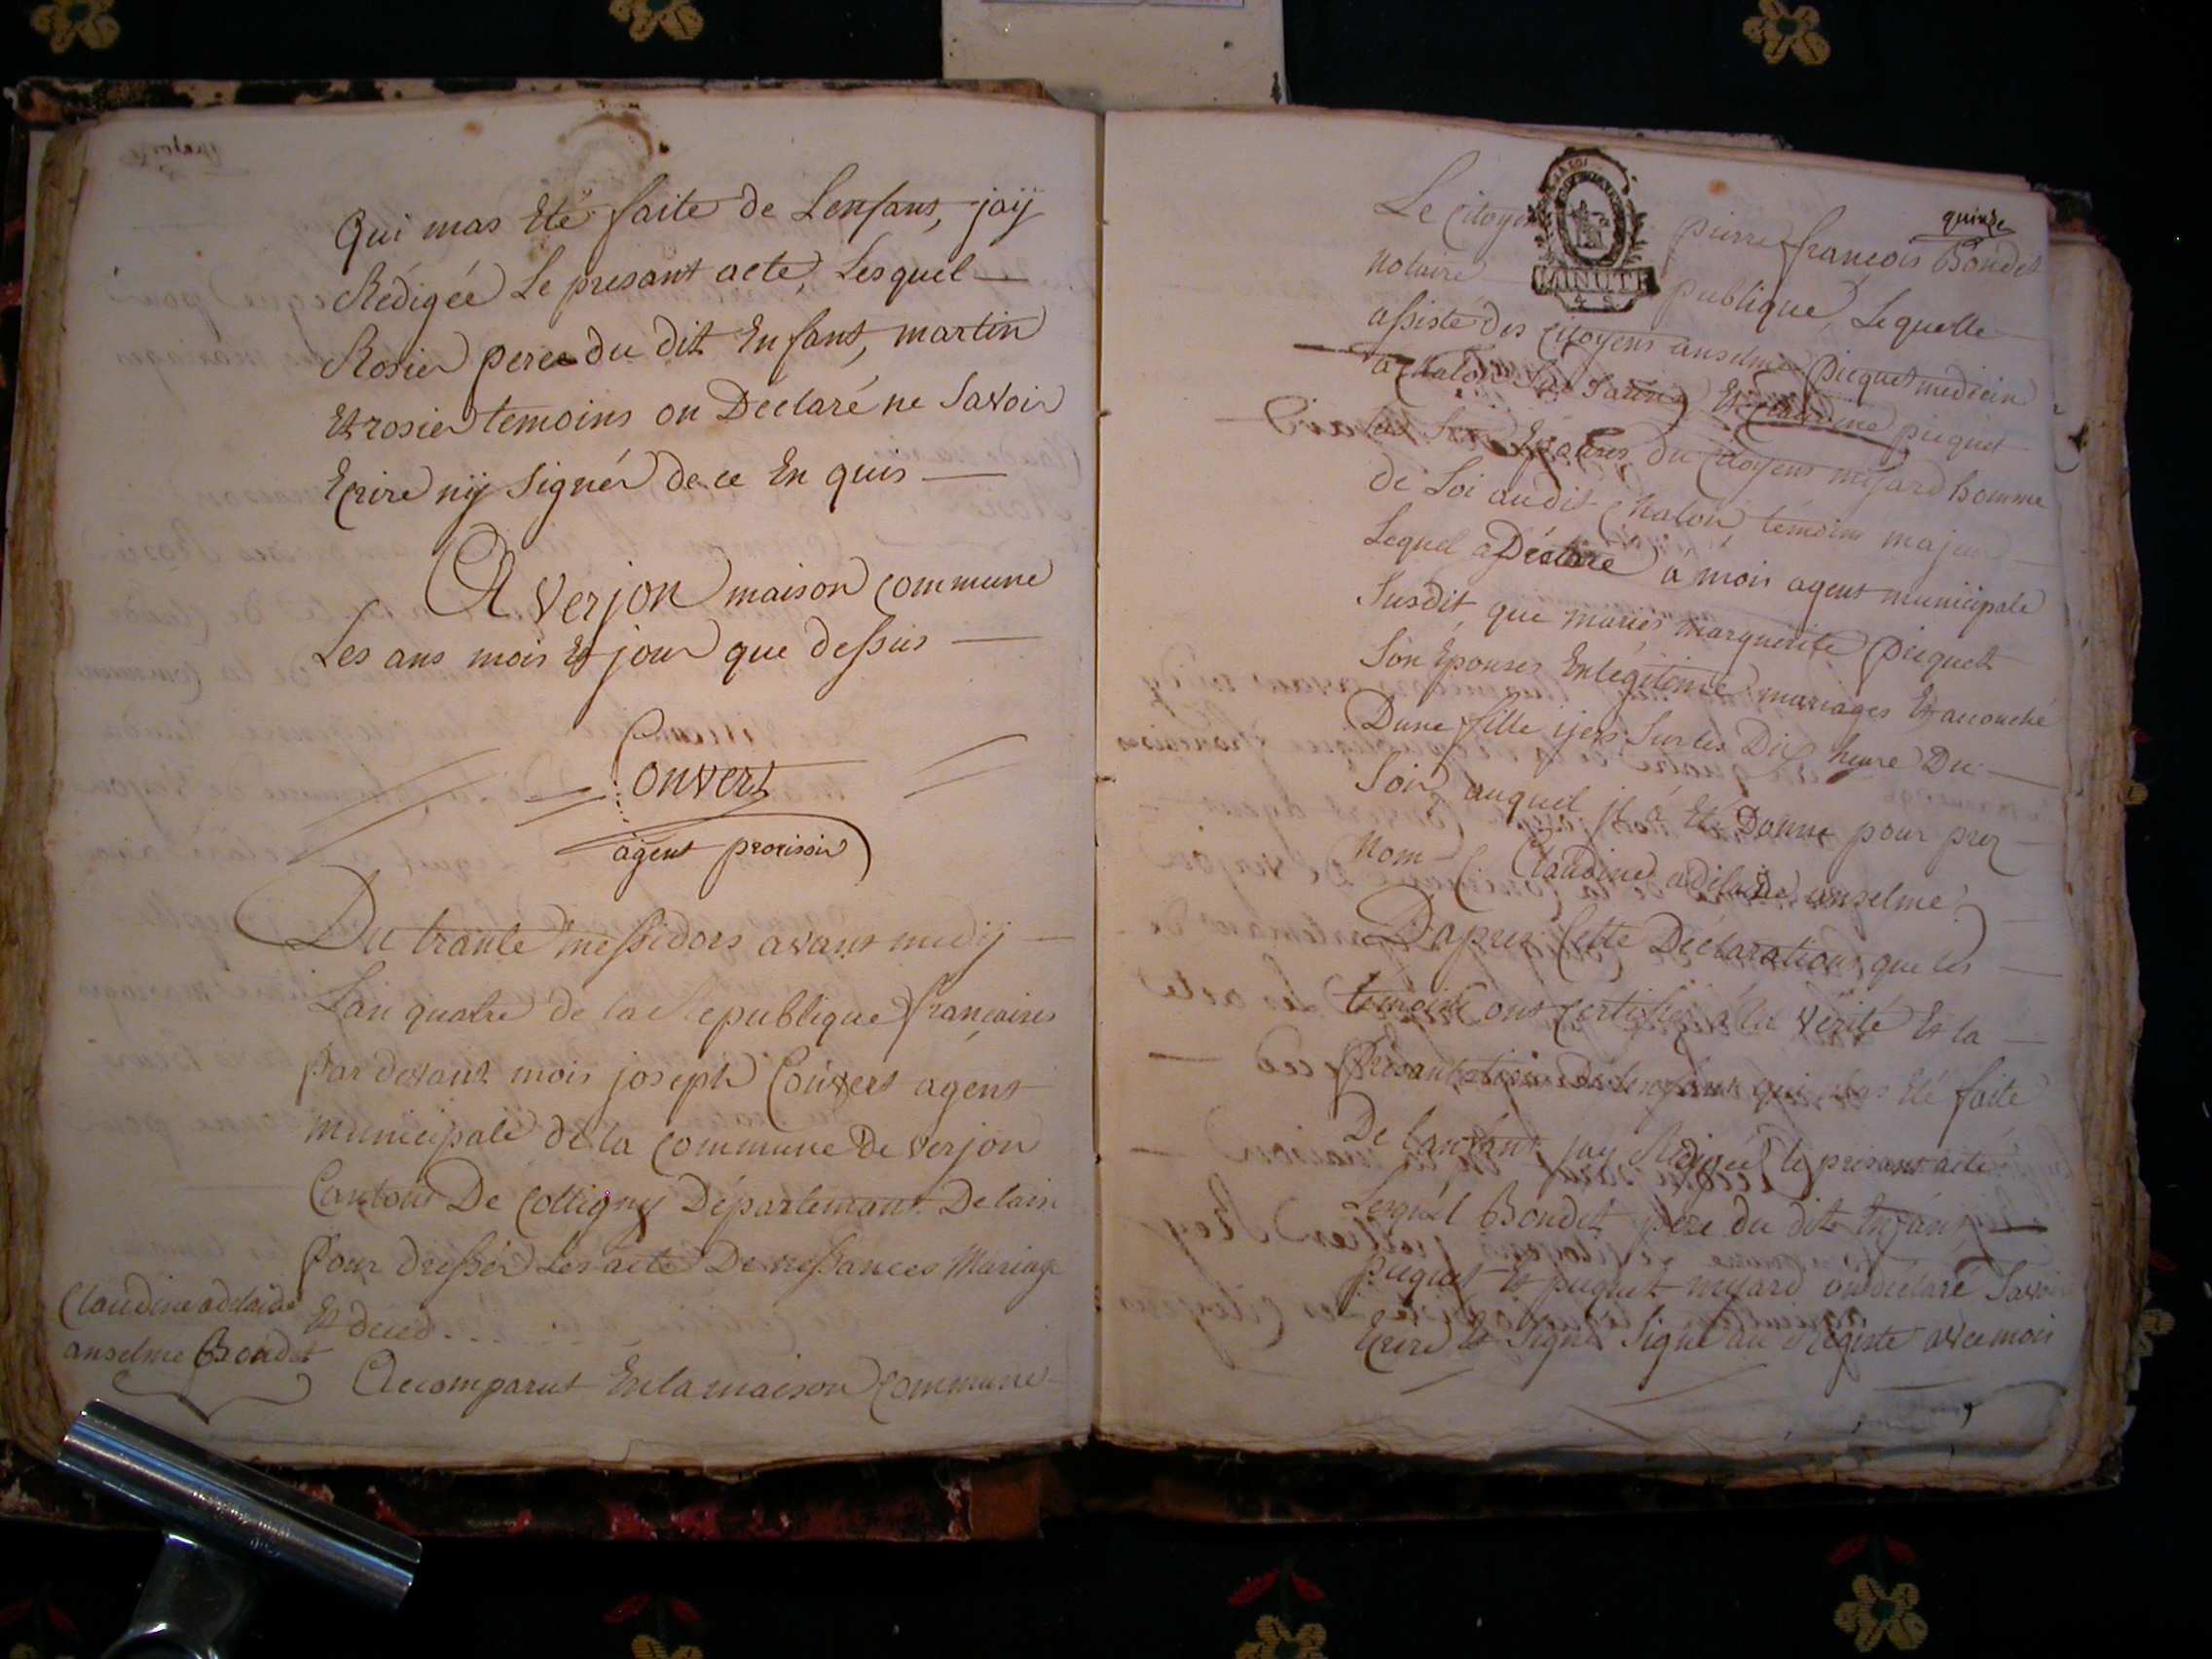 Qui mas Eté faite de Lenfant, jaÿ
Rédigée Le presant acte, Lesquel
Rosier pere du dit Enfant, martin
Et rosier temoins on Déclaré ne Savoir
Ecrire nÿ Signér de ce En quis
A verjon maison Commune
Les ans mois Et jour que dessus
Convert
agent provisoir
Du trante messidors avant midÿ
Lan quatre de la Republique francaises
Par devant mois joseph Convert agent
municipale de la Commune De verjon
Cantont De Colligny Département De lain
Pour dresser Les acte De nessances Mariage
Et deced
Claudine adelaide
anselme Bondet
A comparut En la maison Commune
quinze
Le Citoyen pierre francois Bondet
MINUTE
4 S
notaire publique, Lequelle
assisté des Citoyens anselme Picquet medicin
a Chalon Sur Saône Et Claudine picquet
Epouses du Citoyens misard homme
de Loi audit Chalon, témoins majeur
Lequel a Déclaré a mois agent municipale
Susdit, que maries marguerite Picquet
Son Epouses En legitime mariages Et acouché
Dune fille ijers Sur les Dix heure Du
Soir, auquel il a Eté Donné pour prez
Nom Claudine adelaide anselme
Dapres Cette Déclarations que les
temoins ont Certifié a la vérité Et la
Presantation De Lenfant qui mas Eté faite
De Lanfant jay Rédigée le presant acte
Lesquel Bondet pere du dit Enfant
Picquet Et picquet misard on déclaré Savoir
Ecrire Et Signé Signé au Registe avce mois